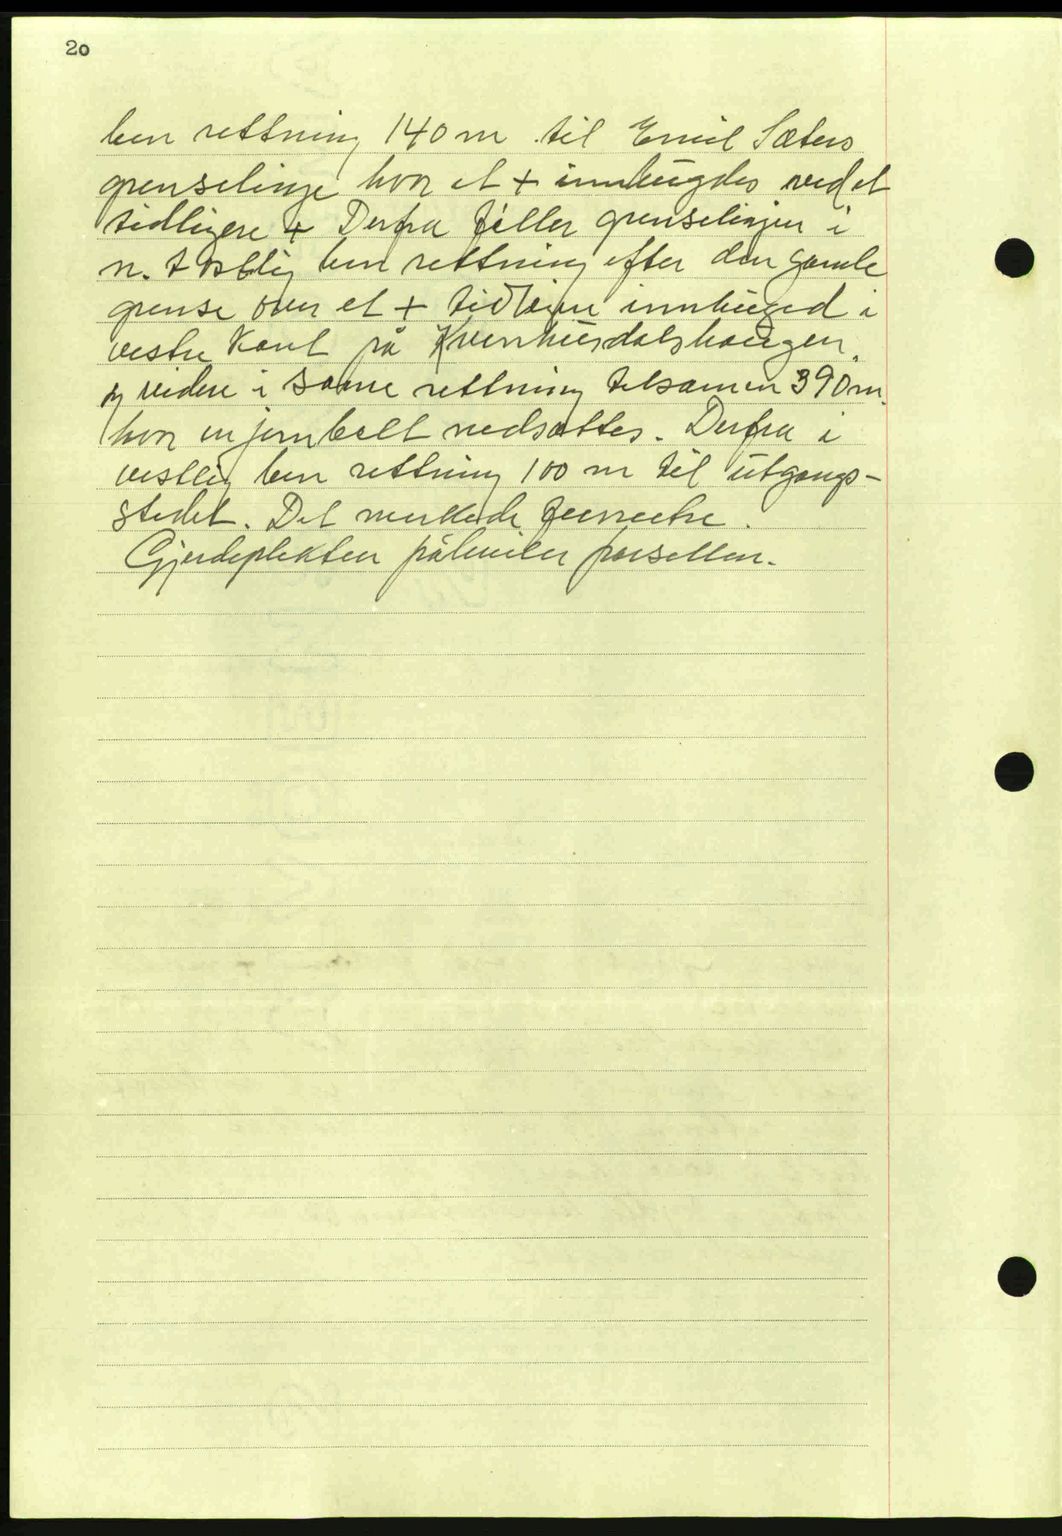 20
ben rettning 140 m til Emil Sæters
grenselinje hvor et + innhugdes ved et
tidligere + Derfra føller grenselinjen i
n. østlig ben rettning efter den gamle
grense over et + tidligere innhuged i
vestre kant på Kvernhusdalshaugen
og videre i same rettning tilsamen 390 m.
hvor en jernbolt nedsattes. Derfra i
vestlig ben rettning 100 m til utgangs-
stedet. Det merkede
Gjerdeplikten påhviler parsellen.